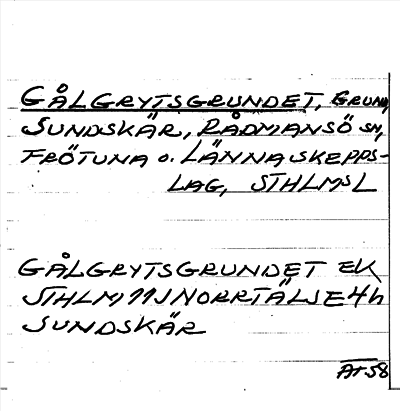 GÅLGRYTSGRUNDET, GRUND,
SUNDSKÄR, RÅDMANSÖ SN,
FRÖTUNA o. LÄNNA SKEPPS-
LAG, STHLMS L
GÅLGRYTSGRUNDET EK
STHLM 11J NORRTÄLJE 4h
SUNDSKÄR
AT 58